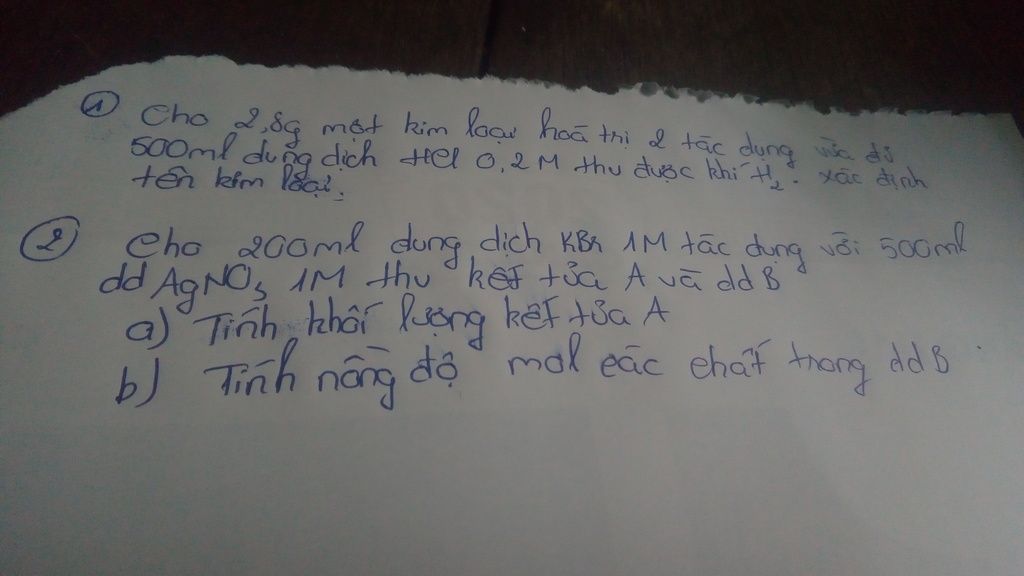 ① Cho 2,8g một kim loại hoá trị 2 tác dụng vừa đủ
500ml dung dịch HCl 0,2M thu được khí H₂. xác định
tên kim loại.
② Cho 200ml dung dịch KBr 1M tác dụng với 500ml
dd AgNO₃ 1M thu kết tủa A và dd B
a) Tính khối lượng kết tủa A
b) Tính nồng độ mol các chất trong dd B